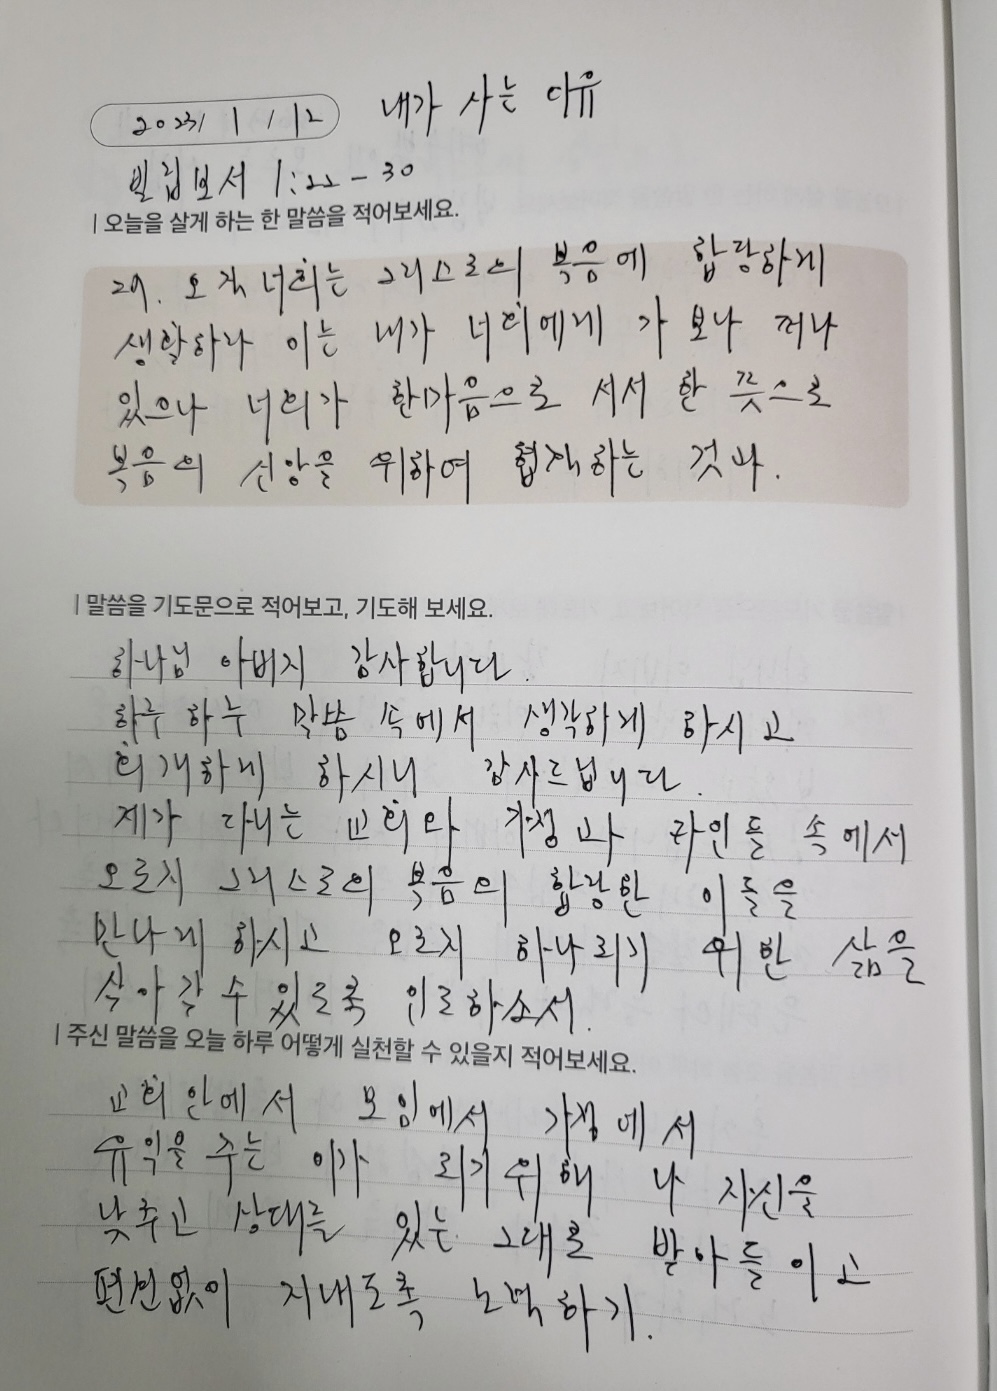 2023/ 1/ 12 내가 사는 이유
빌립보서 1:22-30
| 오늘을 살게 하는 한 말씀을 적어보세요.
27. 오직 너희는 그리스도의 복음에 합당하게
생활하라 이는 내가 너희에게 가 보나 떠나
있으나 너희가 한마음으로 서서 한 뜻으로
복음의 신앙을 위하여 협력하는 것과.
| 말씀을 기도문으로 적어보고, 기도해 보세요.
하나님 아버지 감사합니다.
하루 하루 말씀 속에서 생각하게 하시고
회개하게 하시니 감사드립니다.
제가 다니는 교회와 가정과 라인들 속에서
오로지 그리스도의 복음의 합당한 이들을
만나게 하시고 오로지 하나되기 위한 삶을
살아 갈 수 있도록 인도하소서.
| 주신 말씀을 오늘 하루 어떻게 실천할 수 있을지 적어보세요.
교회 안에서 모임에서 가정에서
유익을 주는 이가 되기 위해 나 자신을
낮추고 상대를 있는 그대로 받아들이고
편견없이 지내도록 노력하기.